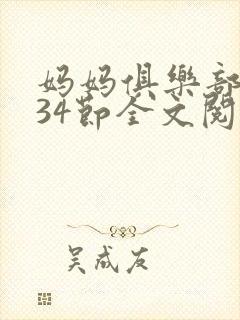 妈妈俱樂部
34節全文閱
吴成友